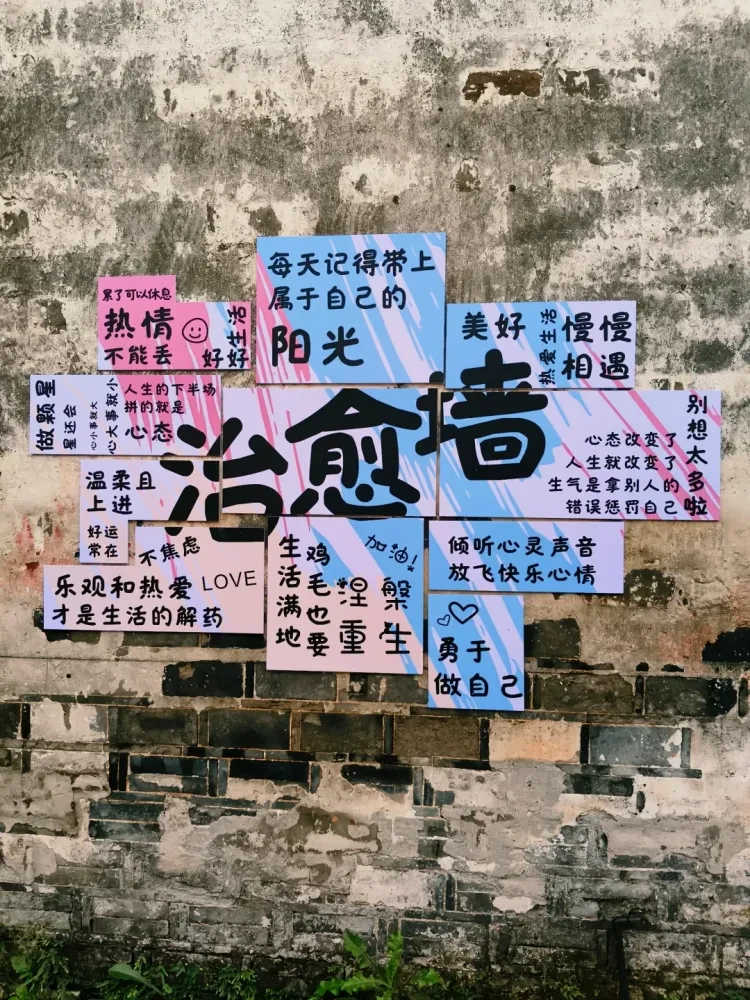 每天记得带上
属于自己的
阳光
累了可以休息
热情
不能丢
好好
生活
美好
热爱生活
慢慢
相遇
做颗星
星还会
心小事就大
心大事就小
人生的下半场
拼的就是
心态
治愈墙
别想太多啦
心态改变了
人生就改变了
生气是拿别人的
错误惩罚自己
温柔且
上进
好运
常在
不焦虑
乐观和热爱
LOVE
才是生活的解药
生活满地
鸡毛也要
加油!
涅槃
重生
倾听心灵声音
放飞快乐心情
勇于
做自己